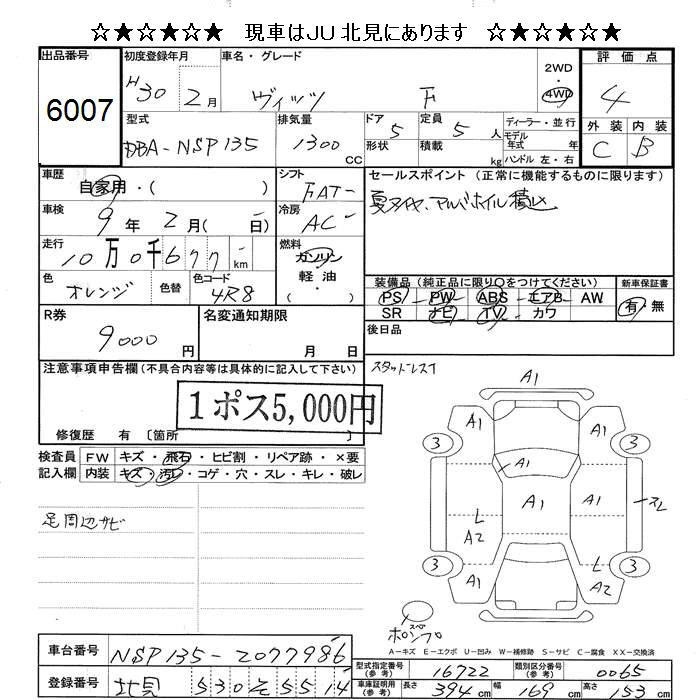 ☆★☆★☆★ 現車はJU北見にあります ☆★☆★☆★
出品番号
6007
初度登録年月
H30 2月
車名・グレード
ヴィッツ F
2WD
・
4WD
評価点
4
外装 内装
C B
型式
DBA-NSP135
排気量
1300 CC
ドア 5
形状
定員 5 人
積載 kg
ディーラー・並行
モデル
年式 年
ハンドル 左・右
車歴
自家用・( )
シフト
FAT
セールスポイント (正常に機能するものに限ります)
夏タイヤ、アルミホイル積込
車検
9年 2月( 日)
冷房
AC
走行
10万0千677km
燃料
ガソリン
軽油
( )
色
オレンジ
色替
色コード
4R8
装備品(純正品に限り○をつけてください)
PS・PW・ABS・エアB・AW
SR ナビ・TV・カワ
新車保証書
有・無
R券
9000円
名変通知期限
月 日
後日品
注意事項申告欄(不具合内容等は具体的に記入して下さい)
1ポス5,000円
修復歴 有 〔箇所
スタッドレス
検査員
記入欄
FW キズ・飛石・ヒビ割・リペア跡・×要
内装 キズ・汚レ・コゲ・穴・スレ・キレ・破レ
足周辺サビ
A1
A1
3
3
A1
A1
A1
A1
スレ
L
A2
3
3
A1
L
A2
スペ
ポンプ
A1
A-キズ E-エクボ U-凹み W-補修跡 S-サビ C-腐食 XX-交換済
車台番号
NSP135-2077986
登録番号
北見 530 そ 5514
型式指定番号
(参考)
16722
類別区分番号
(参考)
0065
車庫証明用
(参考)
長さ 394cm 幅 169cm 高さ 153cm